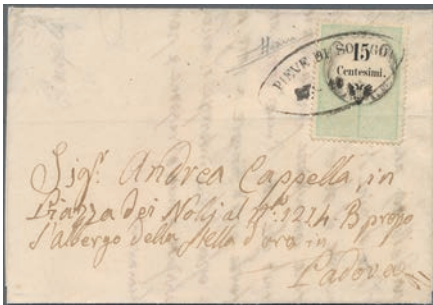 PIEVE DI SOLIGO
15
Centesimi.
Sigr. Andrea Cappella, in
Piazza dei Nolj al No. 1214. B
l'albergo della stella d'oro in
Padova